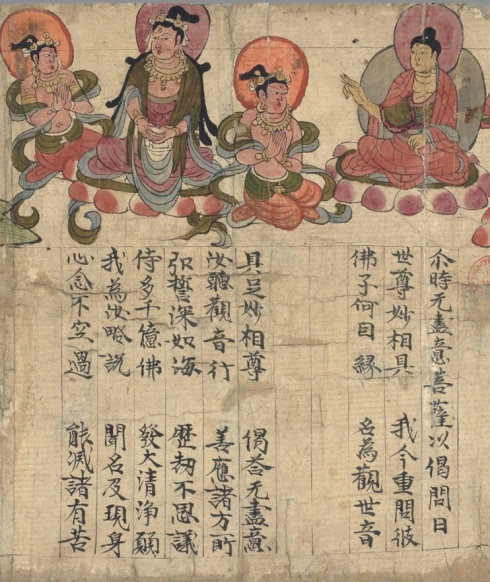 尒時无盡意菩薩以偈問曰
世尊妙相具　我今重問彼
佛子何因縁　名為觀世音
具足妙相尊　偈荅无盡意
汝聽觀音行　善應諸方所
弘誓深如海　歷劫不思議
侍多千億佛　發大清淨願
我為汝略說　聞名及現身
心念不空過　能滅諸有苦